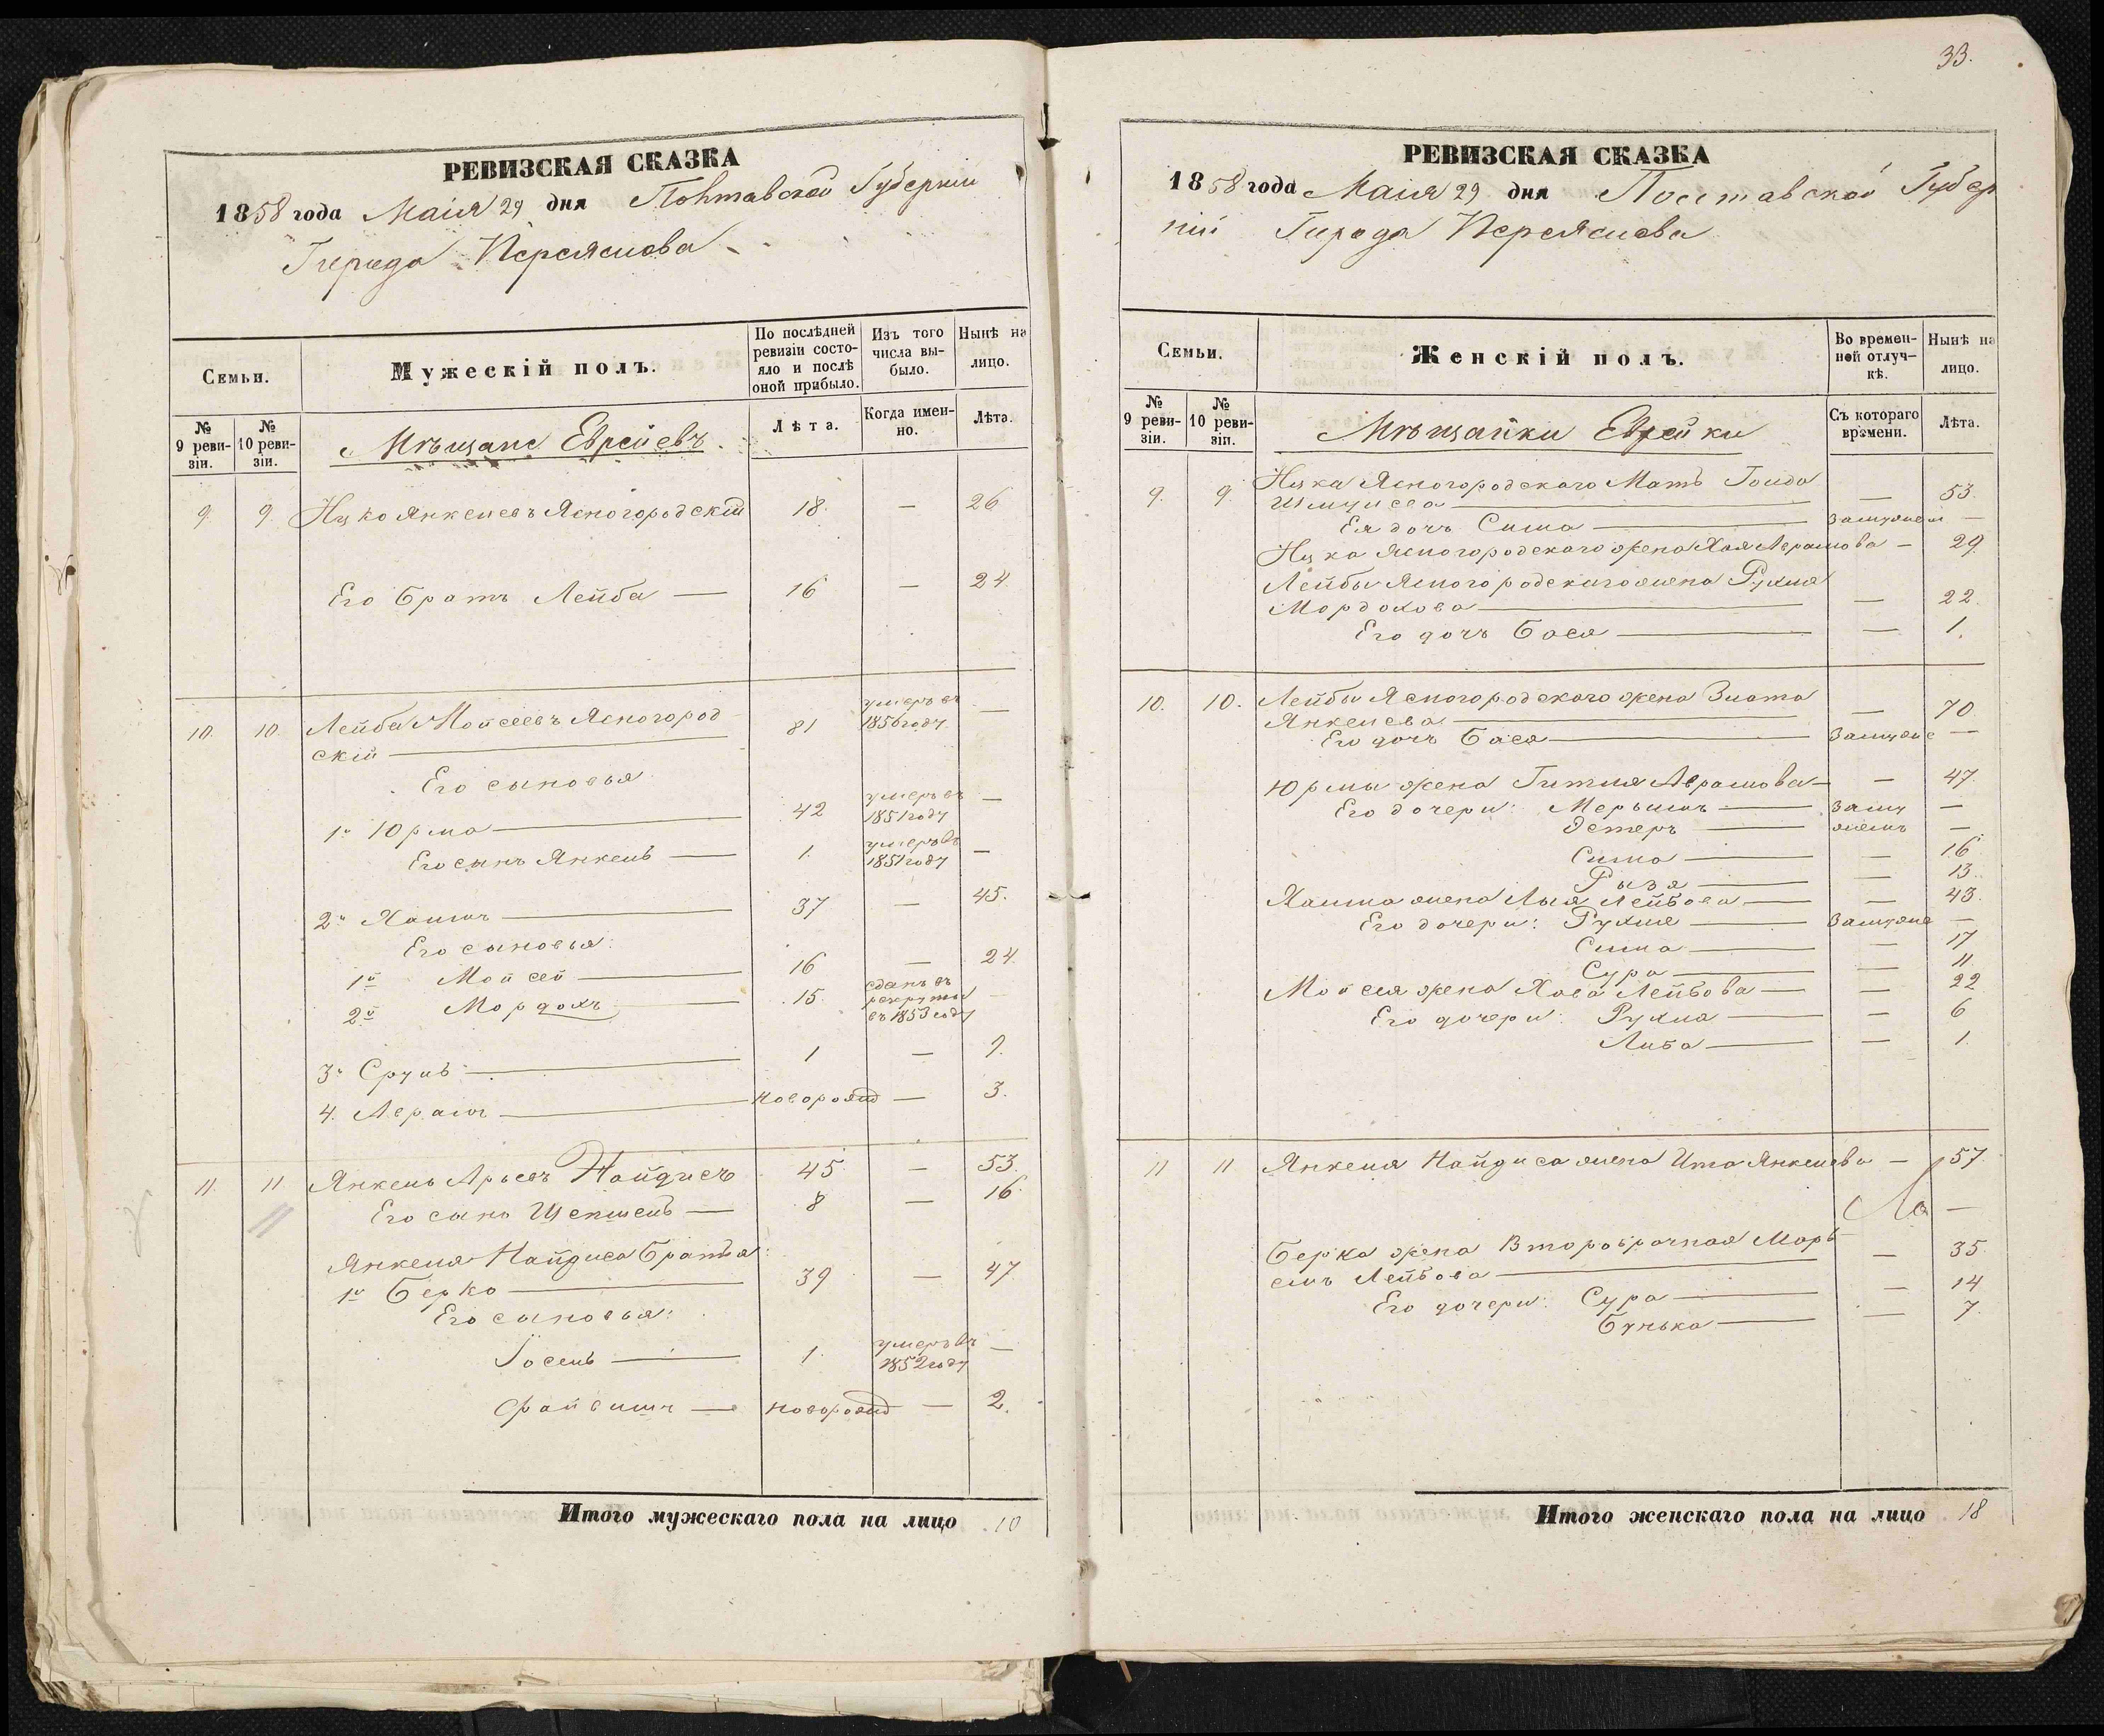 РЕВИЗСКАЯ СКАЗКА
1858 года Маія 29 дня Полтавской Губерніи
Города Переяслова
Семьи.
Мужескій полъ.
По послѣдней ревизіи состояло и послѣ оной прибыло.
Изъ того числа выбыло.
Нынѣ на лицо.
№ 9 ревизіи.
№ 10 ревизіи.
Мѣщане Евреевъ
Лѣта.
Когда именно.
Лѣта.
9. 9. Ицко Янкелевъ Ясногородскій 18. — 26
Его Братъ Лейба — 16 — 24
10. 10. Лейба Мойсеевъ Ясногород 81 умеръ въ 1856 году —
скій
Его сыновья
1й Юрма 42 умеръ въ 1851 году —
Его сынъ Янкель — 1. умеръ въ 1851 году —
2й Хаимъ 37 — 45.
Его сыновья:
1й Мойсей 16 — 24
2й Мордохъ 15. сданъ въ рекруты въ 1853 году —
3й Сруль 1 — 9.
4. Аврамъ новорожд — 3.
11. 11 Янкель Арьевъ Найдисъ 45. — 53.
Его сынъ Шепшель — 8 — 16.
Янкеля Найдиса Братья:
1й Берко 39 — 47
Его сыновья:
Іосель 1. умеръ въ 1852 году —
Файвишъ — новорожд — 2.
Итого мужескаго пола на лицо 10
33.
РЕВИЗСКАЯ СКАЗКА
1858 года Маія 29 дня Полтавской Губер
ніи Города Переяслова
Семьи.
Женскій полъ.
Во временной отлучкѣ.
Нынѣ на лицо.
№ 9 ревизіи.
№ 10 ревизіи.
Мѣщанки Еврейки
Съ котораго времени.
Лѣта.
9. 9. Ицка Ясногородскаго Мать Голда
Шмулева — 53.
Ея дочь Сима замужем —
Ицка Ясногородскаго жена Хая Абрамова — 29.
Лейбы Ясногородскаго жена Рухля
Мордохова — 22.
Его дочь Бася — 1.
10. 10. Лейбы Ясногородскаго жена Злата
Янкелева — 70
Его дочь Бася замуже —
Юрмы жена Гитля Аврамова — 47.
Его дочери: Мерьимъ заму —
Эстеръ жемъ —
Сима — 16
Рызя — 13.
Хаима жена Лыя Лейбова — 43.
Его дочери: Рухля замуже —
Сима — 17
Сура — 11.
Мойсея жена Хава Лейбова — 22
Его дочери: Рухля — 6
Либа — 1.
11 11 Янкеля Найдиса жена Ита Янкелева — 57.
Берка жена Второбрачная Марь
емъ Лейбова — 35.
Его дочери: Сура — 14
Бунька — 7.
Итого женскаго пола на лицо 18